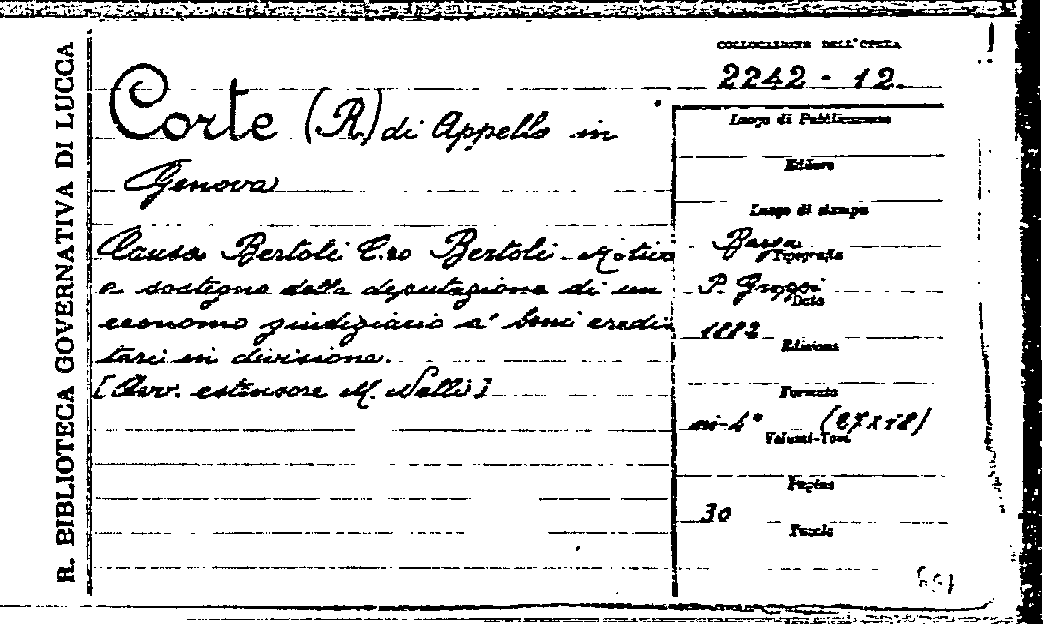 R. BIBLIOTECA GOVERNATIVA DI LUCCA
COLLOCAZIONE DELL'OPERA
2242 - 12.
Corte (R.) di Appello in
Genova
Causa Bertoli C.ro Bertoli - Motivi
a sostegno della deputazione di un
economo giudiziario a' beni eredi
tari in divisione.
[Avv. estensore M. Nelli]
Luogo di Pubblicazione
Editore
Luogo di stampa
Barga
Tipografia
P. Groppi
Data
1882
Edizione
Formato
in-4° (27x18)
Volumi-Tomi
Pagine
30
Tavole